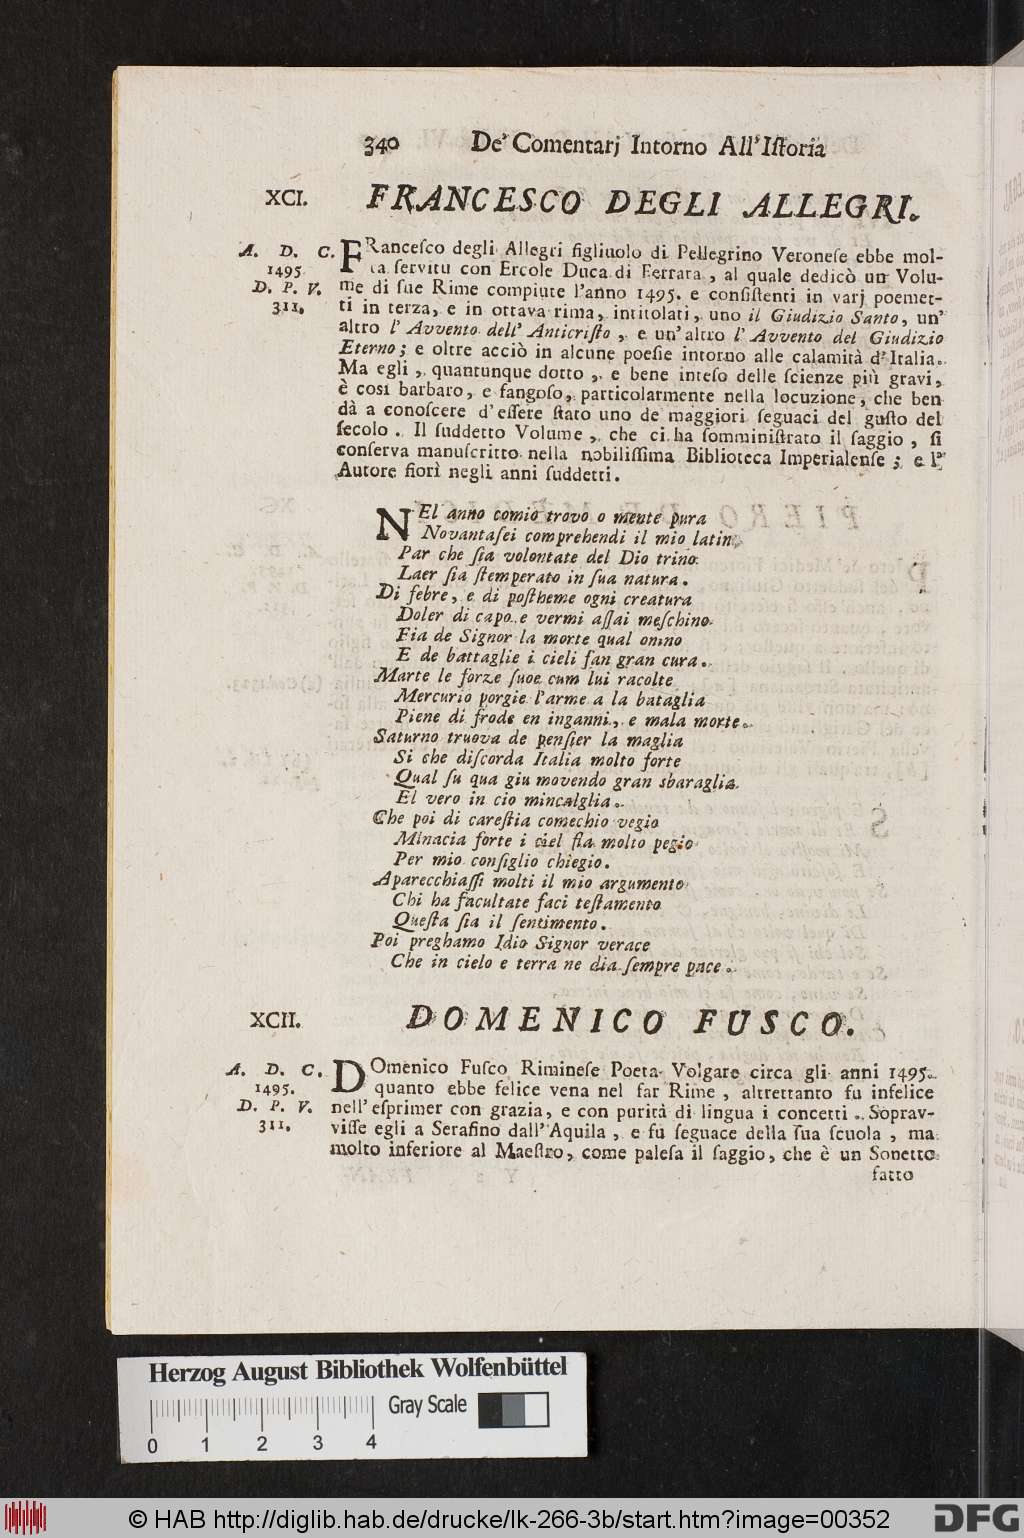 340 De' Comentarj Intorno All'Iſtoria
XCI. FRANCESCO DEGLI ALLEGRI.
A. D. C.
1495
D. P. V.
311.
FRanceſco degli Allegri figliuolo di Pellegrino Veroneſe ebbe mol-
ta ſervitù con Ercole Duca di Ferrara, al quale dedicò un Volu-
me di ſue Rime compiute l'anno 1495. e conſiſtenti in varj poemet-
ti in terza, e in ottava rima, intitolati, uno il Giudizio Santo, un'
altro l'Avvento dell'Anticriſto, e un'altro l'Avvento del Giudizio
Eterno; e oltre acciò in alcune poeſie intorno alle calamità d'Italia.
Ma egli, quantunque dotto, e bene inteſo delle ſcienze più gravi,
è così barbaro, e fangoſo, particolarmente nella locuzione, che ben
dà a conoſcere d'eſſere ſtato uno de maggiori ſeguaci del guſto del
ſecolo. Il ſuddetto Volume, che ci ha ſomminiſtrato il ſaggio, ſi
conſerva manuſcritto nella nobiliſſima Biblioteca Imperialenſe; e l'
Autore fiorì negli anni ſuddetti.
NEl anno comio trovo o mente pura
Novantaſei comprehendi il mio latin
Par che ſia volontate del Dio trino
Laer ſia ſtemperato in ſua natura.
Di febre, e di poſtheme ogni creatura
Doler di capo e vermi aſſai meſchino
Fia de Signor la morte qual omno
E de battaglie i cieli fan gran cura.
Marte le forze ſuoe cum lui racolte
Mercurio porgie l'arme a la bataglia
Piene di frode en inganni, e mala morte.
Saturno truova de penſier la maglia
Si che diſcorda Italia molto forte
Qual ſu qua giu movendo gran sbaraglia
El vero in cio mincalglia.
Che poi di careſtia comechio vegio
Minacia forte i ciel fia molto pegio
Per mio conſiglio chiegio.
Aparecchiaſſi molti il mio argumento
Chi ha facultate faci teſtamento
Queſta ſia il ſentimento.
Poi preghamo Idio Signor verace
Che in cielo e terra ne dia ſempre pace.
XCII. DOMENICO FUSCO.
A. D. C.
1495.
D. P. V.
311.
DOmenico Fuſco Rimineſe Poeta Volgare circa gli anni 1495.
quanto ebbe felice vena nel far Rime, altrettanto fu infelice
nell'eſprimer con grazia, e con purità di lingua i concetti. Soprav-
viſſe egli a Serafino dall'Aquila, e fu ſeguace della ſua ſcuola, ma
molto inferiore al Maeſtro, come paleſa il ſaggio, che è un Sonetto
fatto
Herzog August Bibliothek Wolfenbüttel
Gray Scale
0 1 2 3 4
© HAB http://diglib.hab.de/drucke/lk-266-3b/start.htm?image=00352
DFG